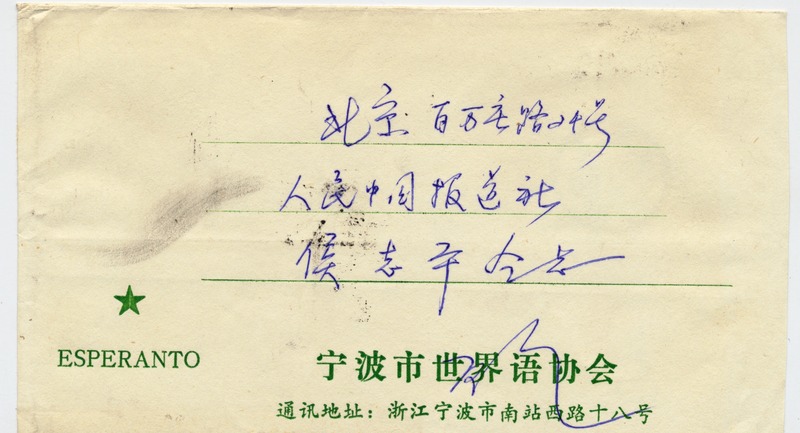 北京百万庄路24号
人民中国报道社
侯志平同志
ESPERANTO
宁波市世界语协会
通讯地址：浙江宁波市南站西路十八号